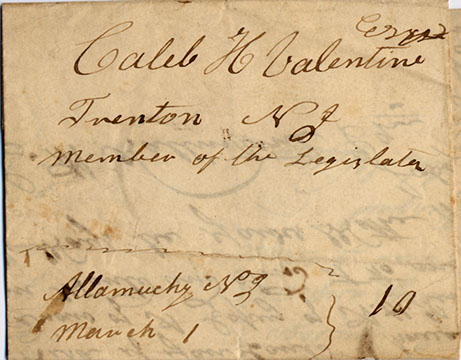 Caleb H Valentine
Trenton NJ
member of the Legislater
Allamuchy NJ
March 1
10